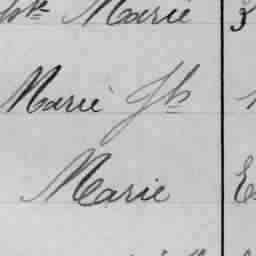 Marie 3
Marie Jh
Marie E